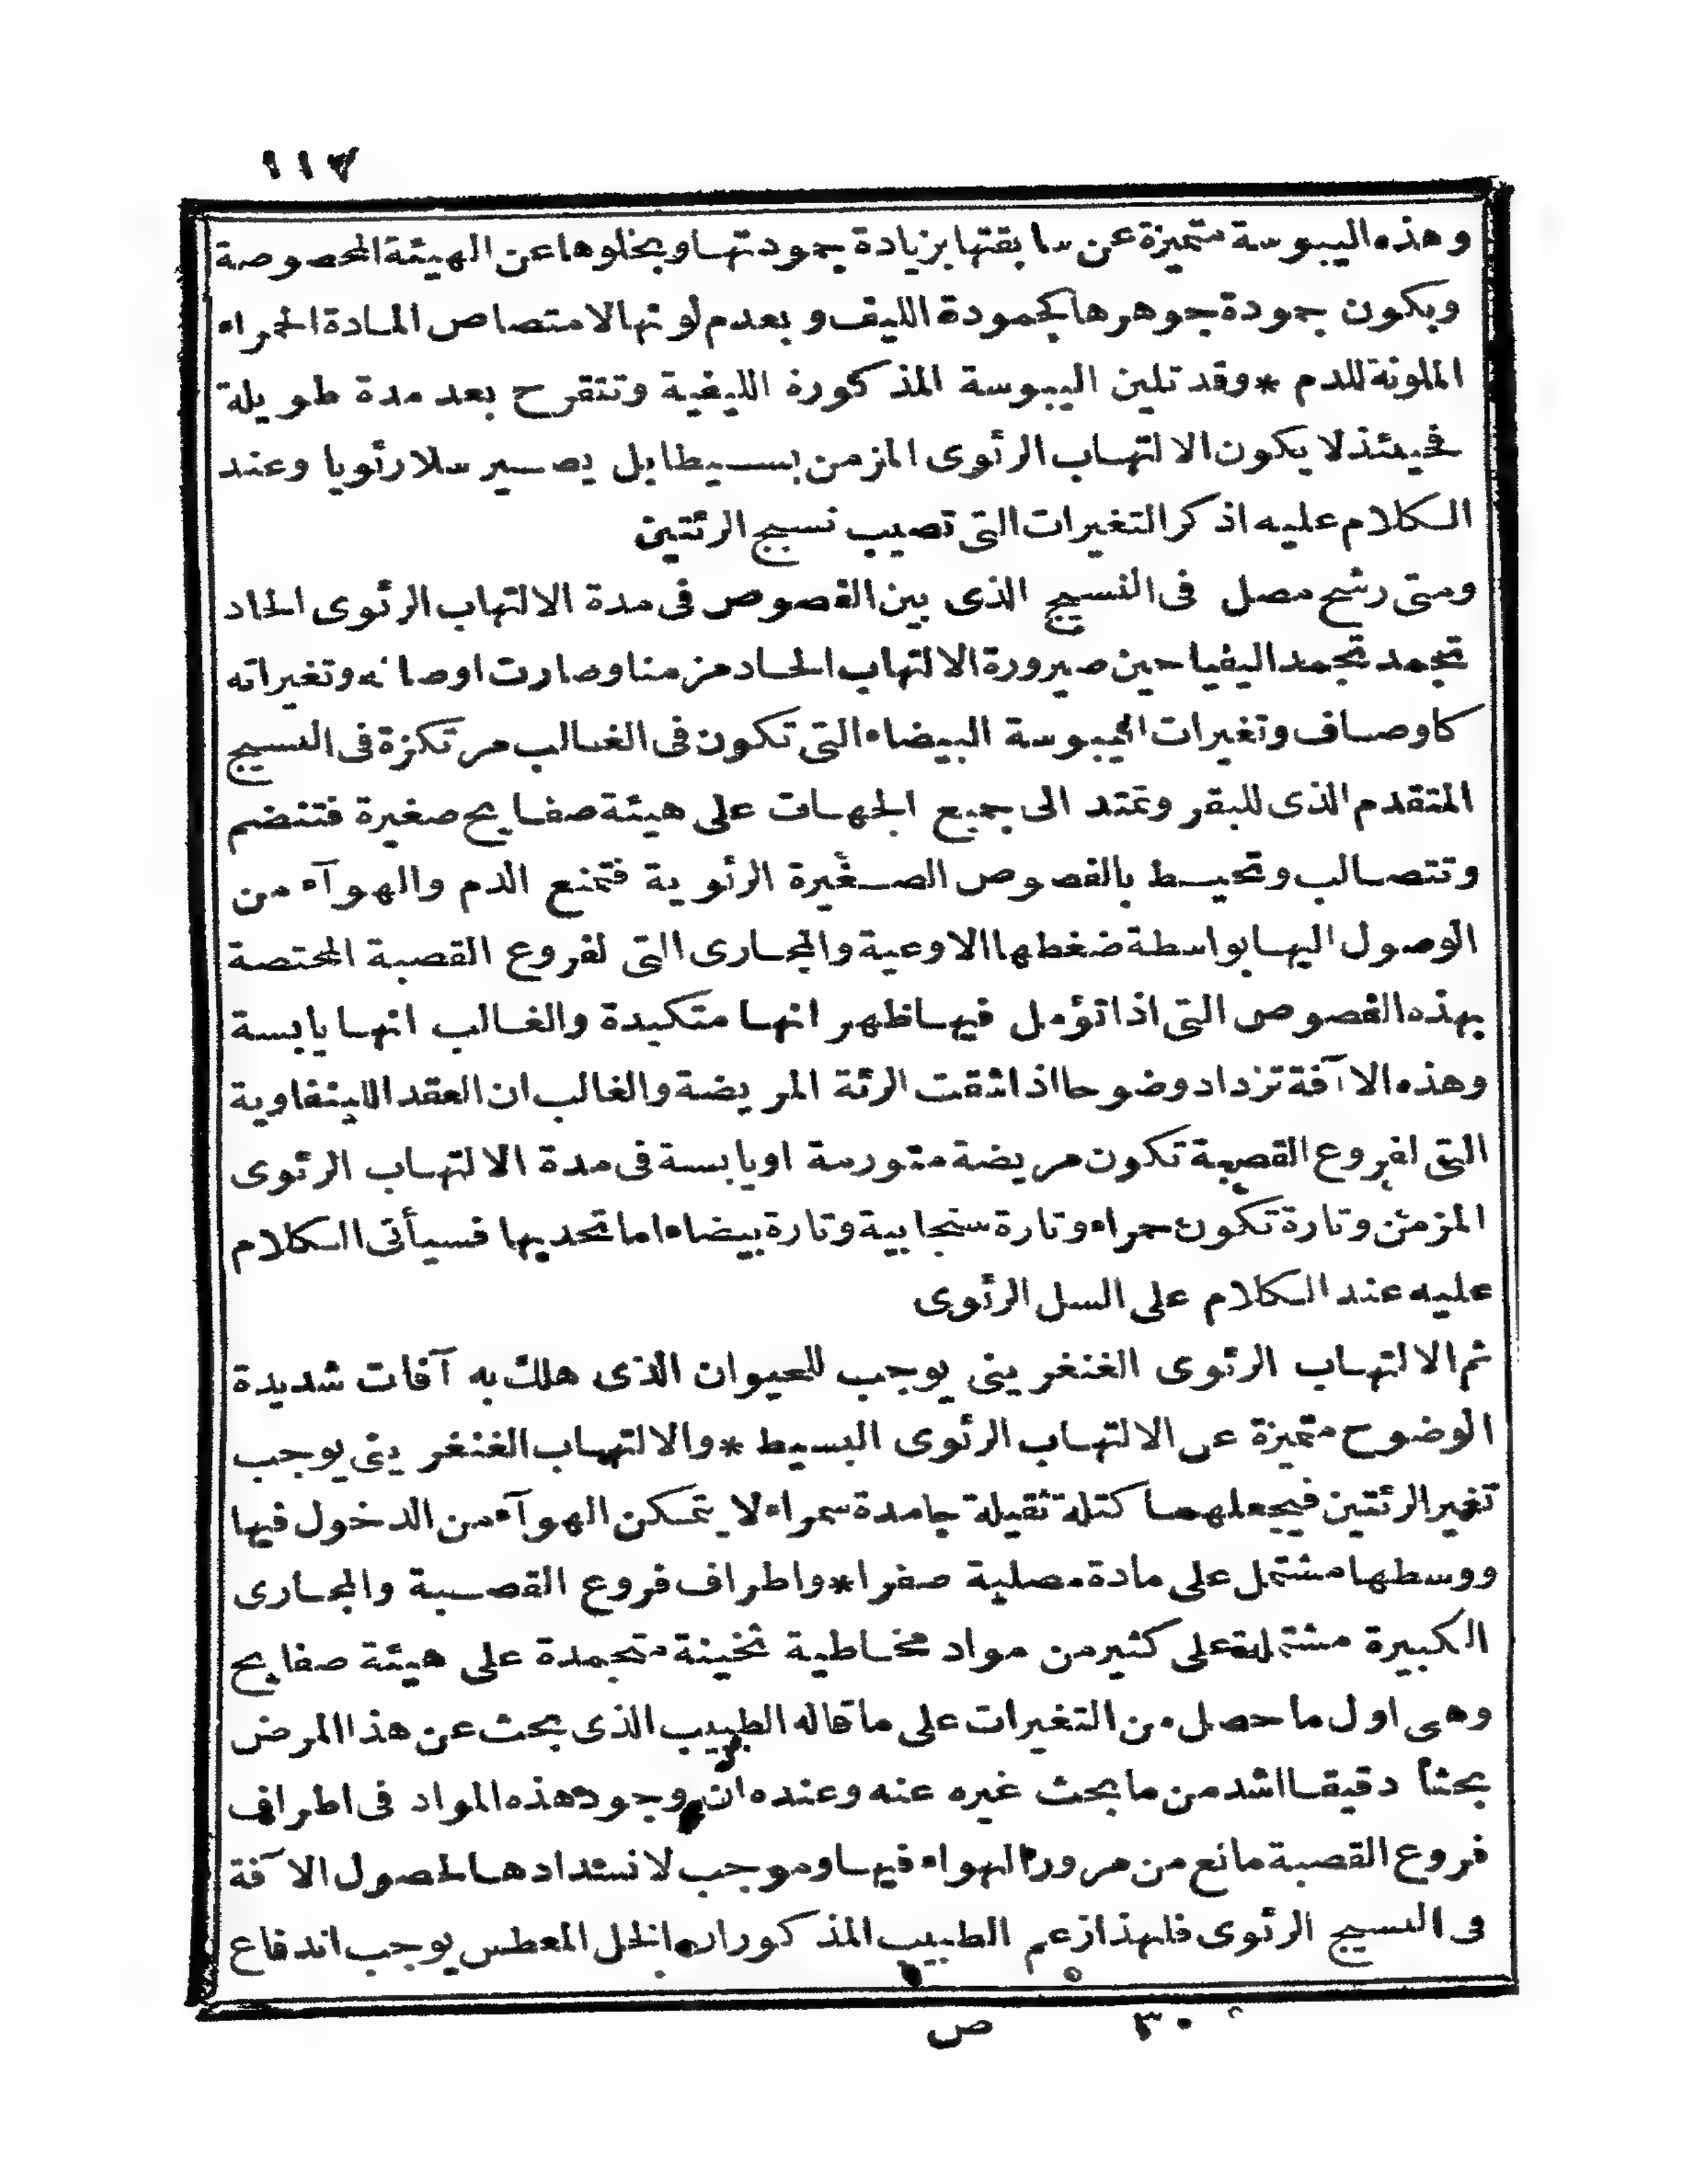 ١١٧
وهذه اليبوسة متميزة عن سابقتها بزيادة جمودتها وبخلوها عن الهيئة المخصوصة
وبكون جمودة جوهرها كجمودة الليف وبعدم لونها لامتصاص المادة الحمراء
الملونة للدم * وقد تلين اليبوسة المذكورة الليفية وتتقرح بعد مدة طويلة
فحينئذ لا يكون الالتهاب الرئوى المزمن بسيطا بل يصير سلا رئويا وعند
الكلام عليه اذكر التغيرات التى تصيب نسيج الرئتين
ومتى رشح مصل فى النسيج الذى بين الفصوص فى مدة الالتهاب الرئوى الحاد
تجمد تجمدا ليفيا حين صيرورة الالتهاب الحاد مزمنا وصارت اوصافه وتغيراته
كاوصاف وتغيرات اليبوسة البيضاء التى تكون فى الغالب مرتكزة فى النسيج
المتقدم الذى للبقر وتمتد الى جميع الجهات على هيئة صفايح صغيرة فتنضم
وتتصالب وتحيط بالفصوص الصغيرة الرئوية فتمنع الدم والهوآء من
الوصول اليها بواسطة ضغطها الاوعية والمجارى التى لفروع القصبة المختصة
بهذه الفصوص التى اذا تؤمل فيها ظهر انها متكبدة والغالب انها يابسة
وهذه الاآفة تزداد وضوحا اذا شقت الرئة المريضة والغالب ان العقد اللينفاوية
التى لفروع القصبة تكون مريضة متورمة او يابسة فى مدة الالتهاب الرئوى
المزمن وتارة تكون حمراء وتارة سنجابية وتارة بيضاء اما تحدبها فسيأتى الكلام
عليه عند الكلام على السل الرئوى
ثم الالتهاب الرئوى الغنغرينى يوجب للحيوان الذى هلك به آفات شديدة
الوضوح متميزة عن الالتهاب الرئوى البسيط * والالتهاب الغنغرينى يوجب
تغير الرئتين فيجعلهما كتلة ثقيلة جامدة سمراء لا يتمكن الهوآء من الدخول فيها
ووسطها مشتمل على مادة مصلية صفرا * واطراف فروع القصبة والمجارى
الكبيرة مشتملة على كثير من مواد مخاطية ثخينة متجمدة على هيئة صفايح
وهى اول ما حصل من التغيرات على ما قاله الطبيب الذى بحث عن هذا المرض
بحثا دقيقا اشد من ما بحث غيره عنه وعنده ان وجود هذه المواد فى اطراف
فروع القصبة مانع من مرور الهواء فيها وموجب لانسدادها لحصول الآفة
فى النسيج الرئوى فلهذا زعم الطبيب المذكور ان الخل المعطس يوجب اندفاع
٣٠ ص